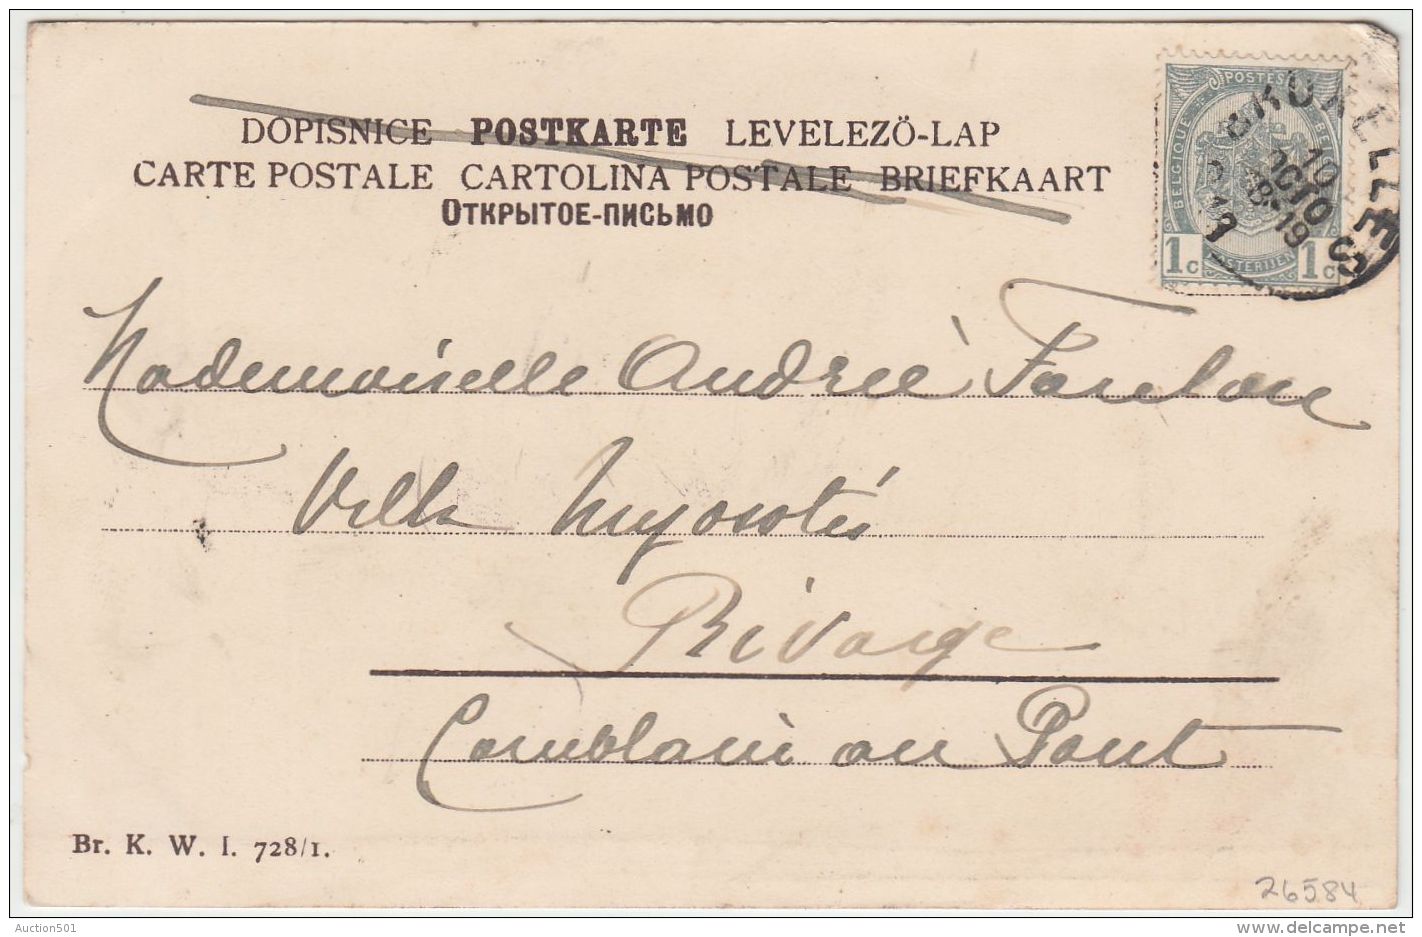 DOPISNICE POSTKARTE LEVELEZÖ-LAP
CARTE POSTALE CARTOLINA POSTALE BRIEFKAART
ОТКРЫТОЕ-ПИСЬМО
POSTES
BELGIQUE
1c 1c
BRUXELLES
10
OCT
18-19
Mademoiselle Andrée
Villa Myosotis
Rivage
Comblain au Pont
Br. K. W. I. 728/1.
26584
Auction501
delcampe.net